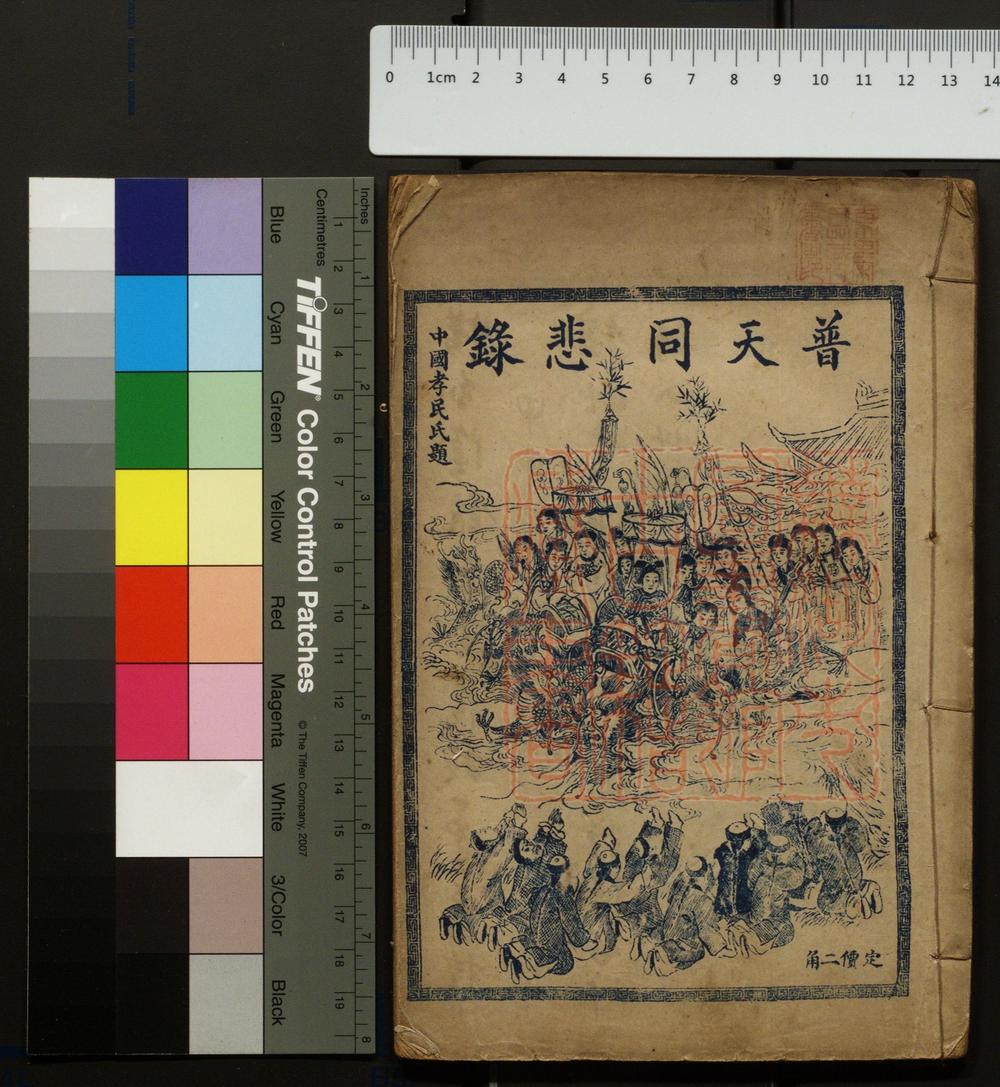 0 1cm 2 3 4 5 6 7 8 9 10 11 12 13 14
Inches
1 2 3 4 5 6 7 8
Centimetres
1 2 3 4 5 6 7 8 9 10 11 12 13 14 15 16 17 18 19
TIFFEN® Color Control Patches
© The Tiffen Company, 2007
Blue
Cyan
Green
Yellow
Red
Magenta
White
3/Color
Black
普天同悲錄
中國孝民氏題
定價二角